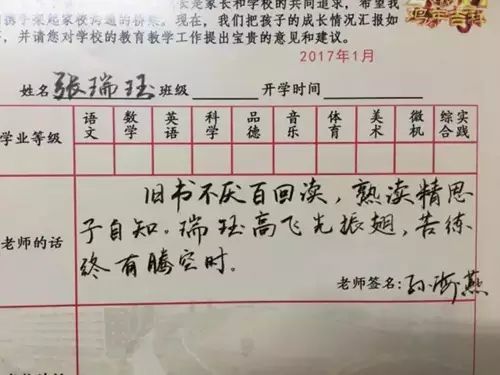 长是家长和学校的共同追求，希望我
们携手架起家校沟通的桥梁。现在，我们把孩子的成长情况汇报如
并请您对学校的教育教学工作提出宝贵的意见和建议。
2017年1月
姓名 张瑞珏 班级 开学时间
学业等级 语文 数学 英语 科学 品德 音乐 体育 美术 微机 综合实践
老师的话
旧书不厌百回读，熟读精思
子自知。瑞珏高飞先振翅，苦练
终有腾空时。
老师签名：孙海燕